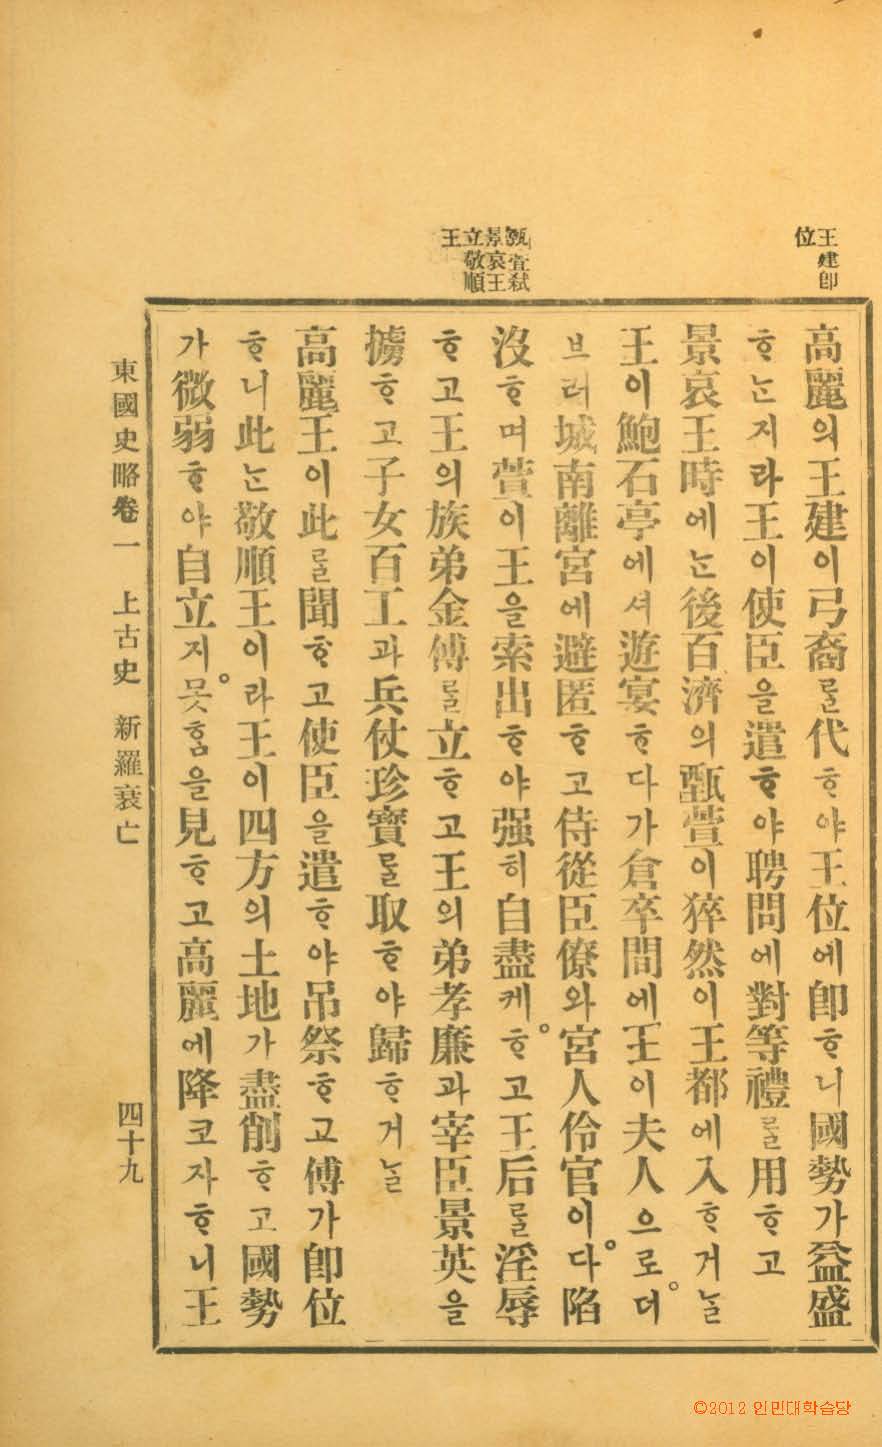 王建卽
位
甄萱弑
景哀王
立敬順
王
高麗의王建이弓裔를代ᄒᆞ야王位에卽ᄒᆞ니國勢가益盛
ᄒᆞᄂᆞᆫ지라王이使臣을遣ᄒᆞ야聘問에對等禮를用ᄒᆞ고
景哀王時에ᄂᆞᆫ後百濟의甄萱이猝然이王都에入ᄒᆞ거ᄂᆞᆯ
王이鮑石亭에셔遊宴ᄒᆞ다가倉卒間에王이夫人으로더
브러城南離宮에避匿ᄒᆞ고侍從臣僚와宮人伶官이다陷
沒ᄒᆞ며萱이王을索出ᄒᆞ야强히自盡케ᄒᆞ고王后를淫辱
ᄒᆞ고王의族弟金傅를立ᄒᆞ고王의弟孝廉과宰臣景英을
擄ᄒᆞ고子女百工과兵仗珍寶를取ᄒᆞ야歸ᄒᆞ거ᄂᆞᆯ
高麗王이此를聞ᄒᆞ고使臣을遣ᄒᆞ야吊祭ᄒᆞ고傅가卽位
ᄒᆞ니此ᄂᆞᆫ敬順王이라王이四方의土地가盡削ᄒᆞ고國勢
가微弱ᄒᆞ야自立지못ᄒᆞᆷ을見ᄒᆞ고高麗에降코자ᄒᆞ니王
東國史略卷一 上古史 新羅衰亡 四十九
©2012 인민대학습당